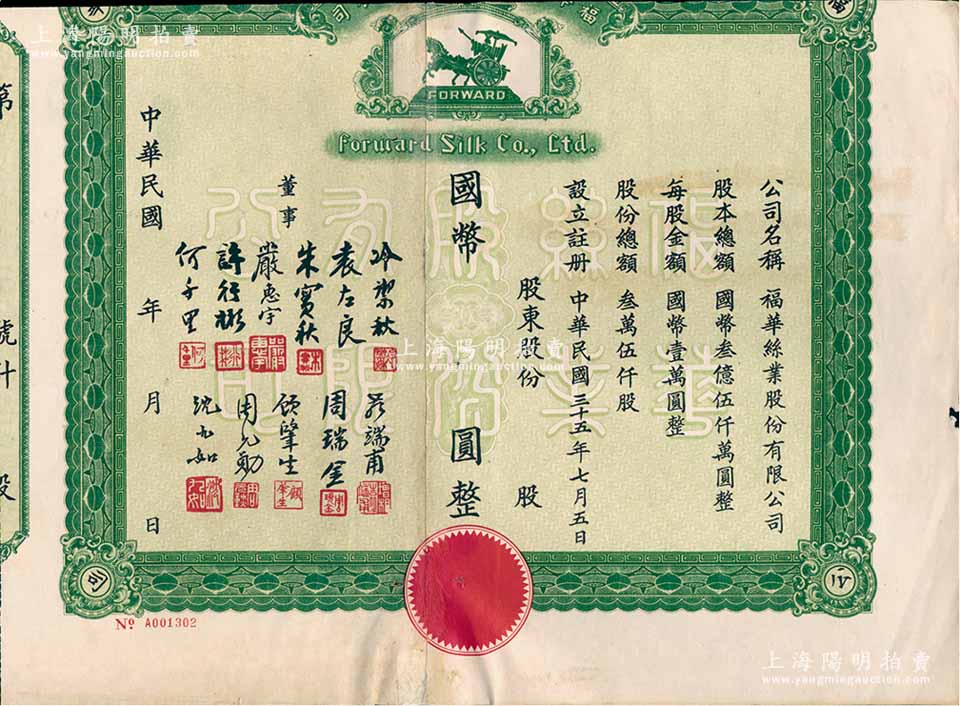 上海陽明拍賣
www.yangmingauction.com
FORWARD
Forward Silk Co., Ltd.
公司名稱 福華絲業股份有限公司
股本總額 國幣叁億伍仟萬圓整
每股金額 國幣壹萬圓整
股份總額 叁萬伍仟股
設立註册 中華民國三十五年七月五日
股東股份 股
國幣 圓整
董事
冷禦秋
袁左良
朱寶秋
嚴惠宇
許行彬
何千里
端甫
周瑞全
顧肇生
周允勳
沈九如
中華民國 年 月 日
第
號計
股
上海陽明拍賣
www.yangmingauction.com
Nº A001302
上海陽明拍賣
www.yangmingauction.com